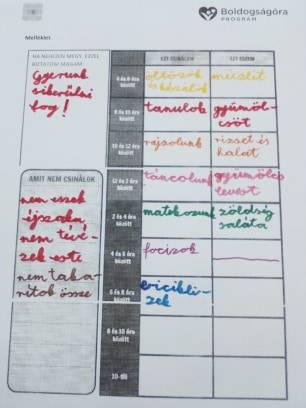 Boldogságóra
PROGRAM
Melléklet
HA NEHEZEN MEGY, EZZEL
BIZTATOM MAGAM:
Gyerünk
sikerülni
fog!
AMIT NEM CSINÁLOK
nem eszek
éjszaka
nem tévé-
zek este
nem taka-
rítok össze
EZT CSINÁLOM
EZT ESZEM
6 és 8 óra
között
öltözök
müzlit
8 és 10 óra
között
tanulok
gyümöl-
csöt
10 és 12 óra
között
rajzolunk
rizset és
halat
12 és 2 óra
között
táncolunk
gyümölcs
levest
2 és 4 óra
között
matekozunk
zöldség
saláta
4 és 6 óra
között
focizok
6 és 8 óra
között
bicikli-
zek
8 és 10 óra
között
10-től